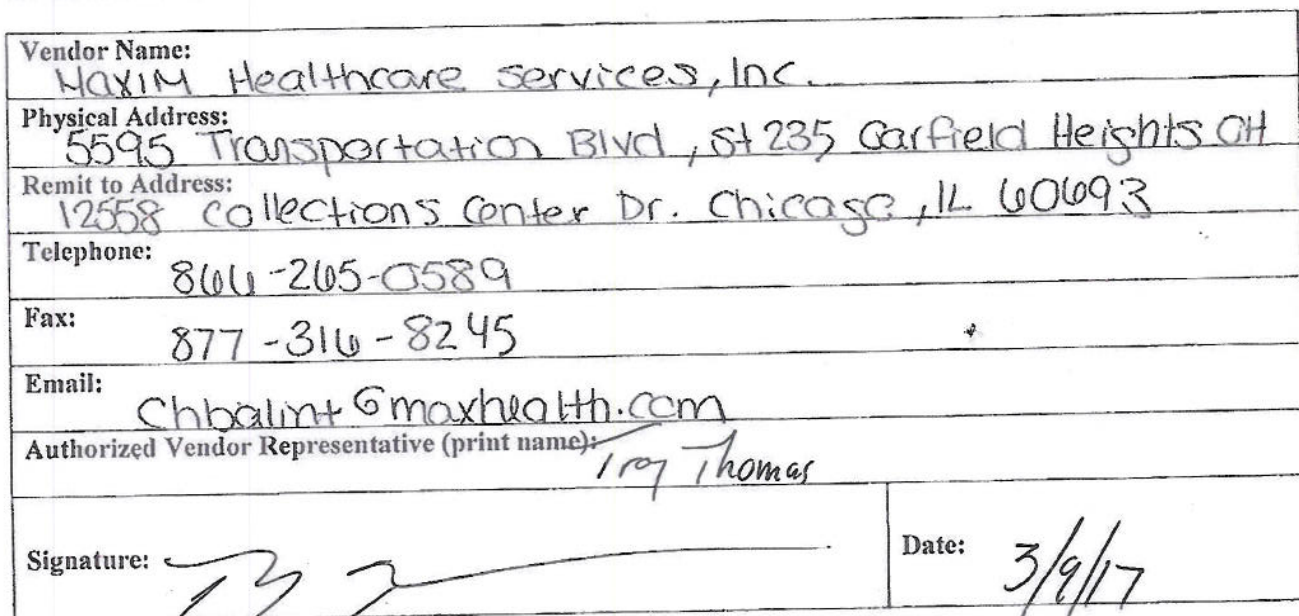 Vendor Name:
Maxim Healthcare services, Inc.
Physical Address:
5595 Transportation Blvd, St 235 Garfield Heights OH
Remit to Address:
12558 Collections Center Dr. Chicago, IL 60693
Telephone:
866-265-0589
Fax:
877-316-8245
Email:
Chbalint@maxhealth.com
Authorized Vendor Representative (print name): Troy Thomas
Signature:
Date: 3/9/17